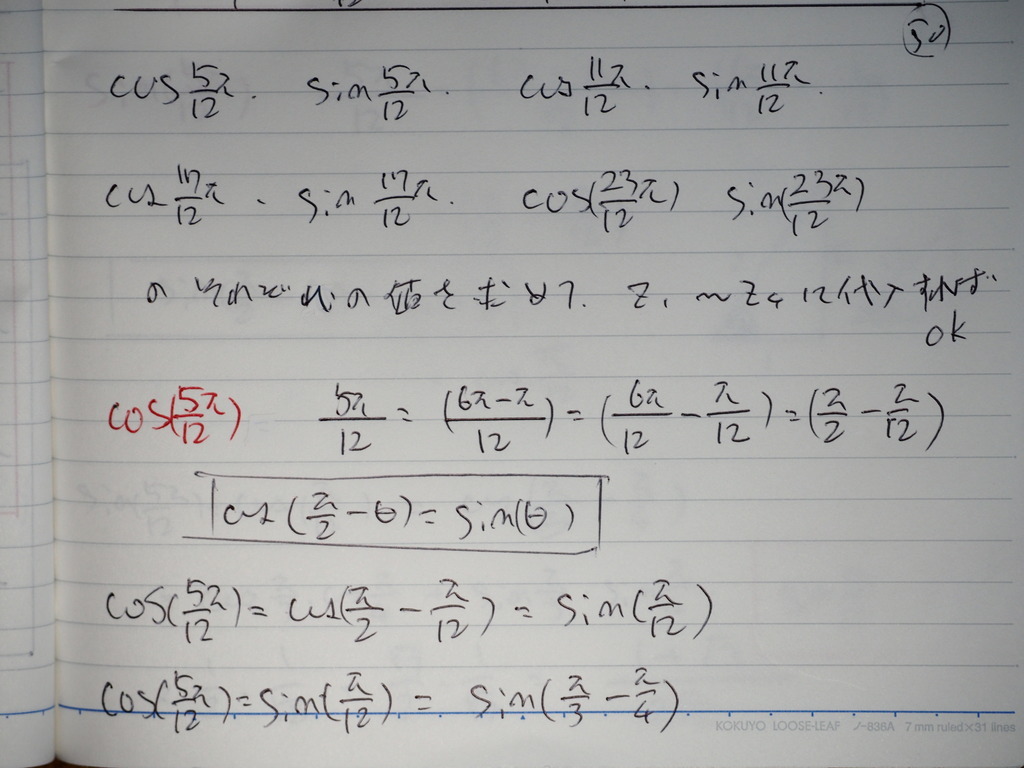 50
cos 5π/12 . sin 5π/12 . cos 11π/12 . sin 11π/12 .
cos 17π/12 . sin 17π/12 . cos(23π/12) sin(23π/12)
の それぞれの値を求めて. Z₁ ~ Z₄ に代入すれば
ok
cos(5π/12) 5π/12 = (6π-π/12) = (6π/12 - π/12) = (π/2 - π/12)
cos(π/2 - θ) = sin(θ)
cos(5π/12) = cos(π/2 - π/12) = sin(π/12)
cos(5π/12) = sin(π/12) = sin(π/3 - π/4)
KOKUYO LOOSE-LEAF ノ-836A 7 mm ruled×31 lines